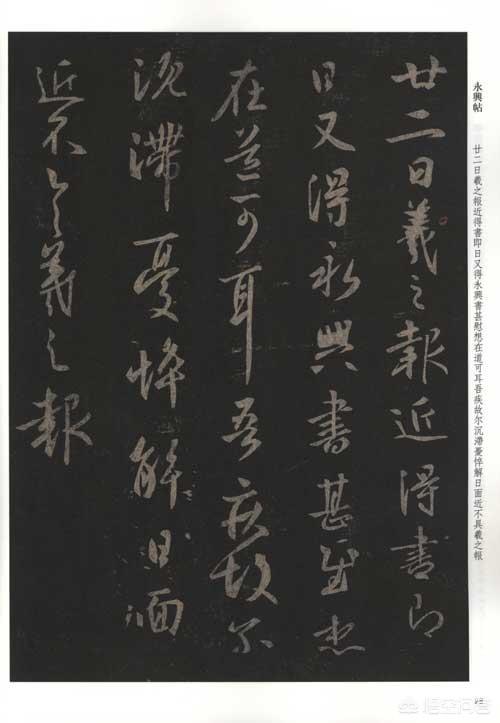 永興帖
廿二日羲之報近得書即日又得永興書甚慰想在道可耳吾疾故尔沉滯憂悴解日面近不具羲之報
廿二日羲之報近得書即
日又得永興書甚慰想
在道可耳吾疾故尔
沉滯憂悴解日面
近不具羲之報
悟空问答